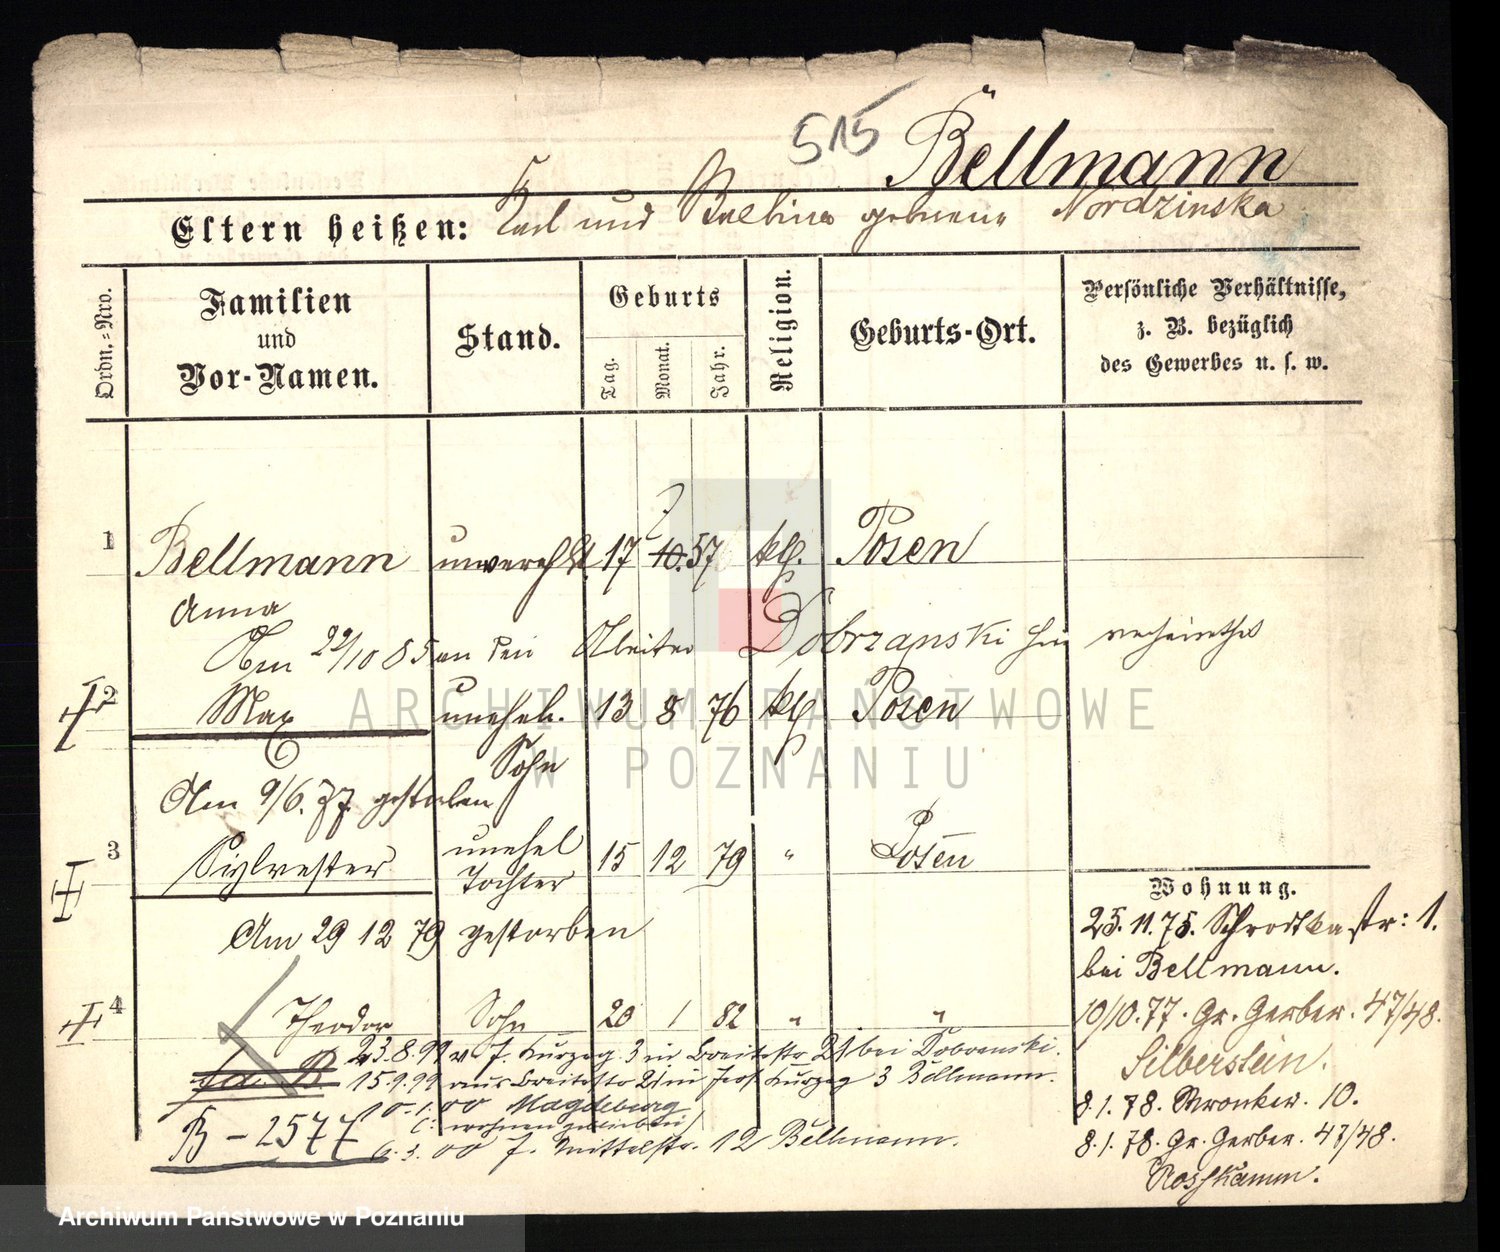 515 Bellmann
Eltern heißen: Karl und Balbina geborene Nordzinska
Ordn.=Nro.
Familien
und
Vor-Namen.
Stand.
Geburts
Tag. Monat. Jahr.
Religion.
Geburts-Ort.
Persönliche Verhältnisse,
z. B. bezüglich
des Gewerbes u. s. w.
1 Bellmann unverehl. 17 10. 57 kth. Posen
Anna
Am 22/10 85 an den Arbeiter Dobrzanski hier verheirathet
2 Max unehel. 13 8 76 kth. Posen
Sohn
Am 9/6. 77. gestorben
3 Sylvester unehel 15 12 79 " Posen
Tochter
Am 29 12 79 gestorben
4 Theodor Sohn 20 1 82 " "
23.8.99 v. J. 3 in Breitestr 21 bei
15.9.99 aus Breitestr 21 in 3 Bellmann.
10.1.00 Magdeburg
B - 2577
6.3.00 J. Mittelstr. 12 Bellmann.
Wohnung.
25.11.75. Schrodkastr: 1.
bei Bellmann.
10/10.77. Gr. Gerber. 47/48.
Silberstein.
8.1.78. Wronker. 10.
8.1.78. Gr. Gerber. 47/48.
Rosskamm.
ARCHIWUM PAŃSTWOWE
W POZNANIU
Archiwum Państwowe w Poznaniu